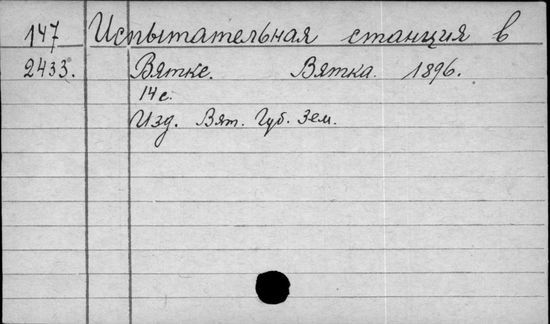 147 Испытательная станция в
2433. Вятке. Вятка. 1896.
14 с.
Изд. Вят. Губ. Зем.